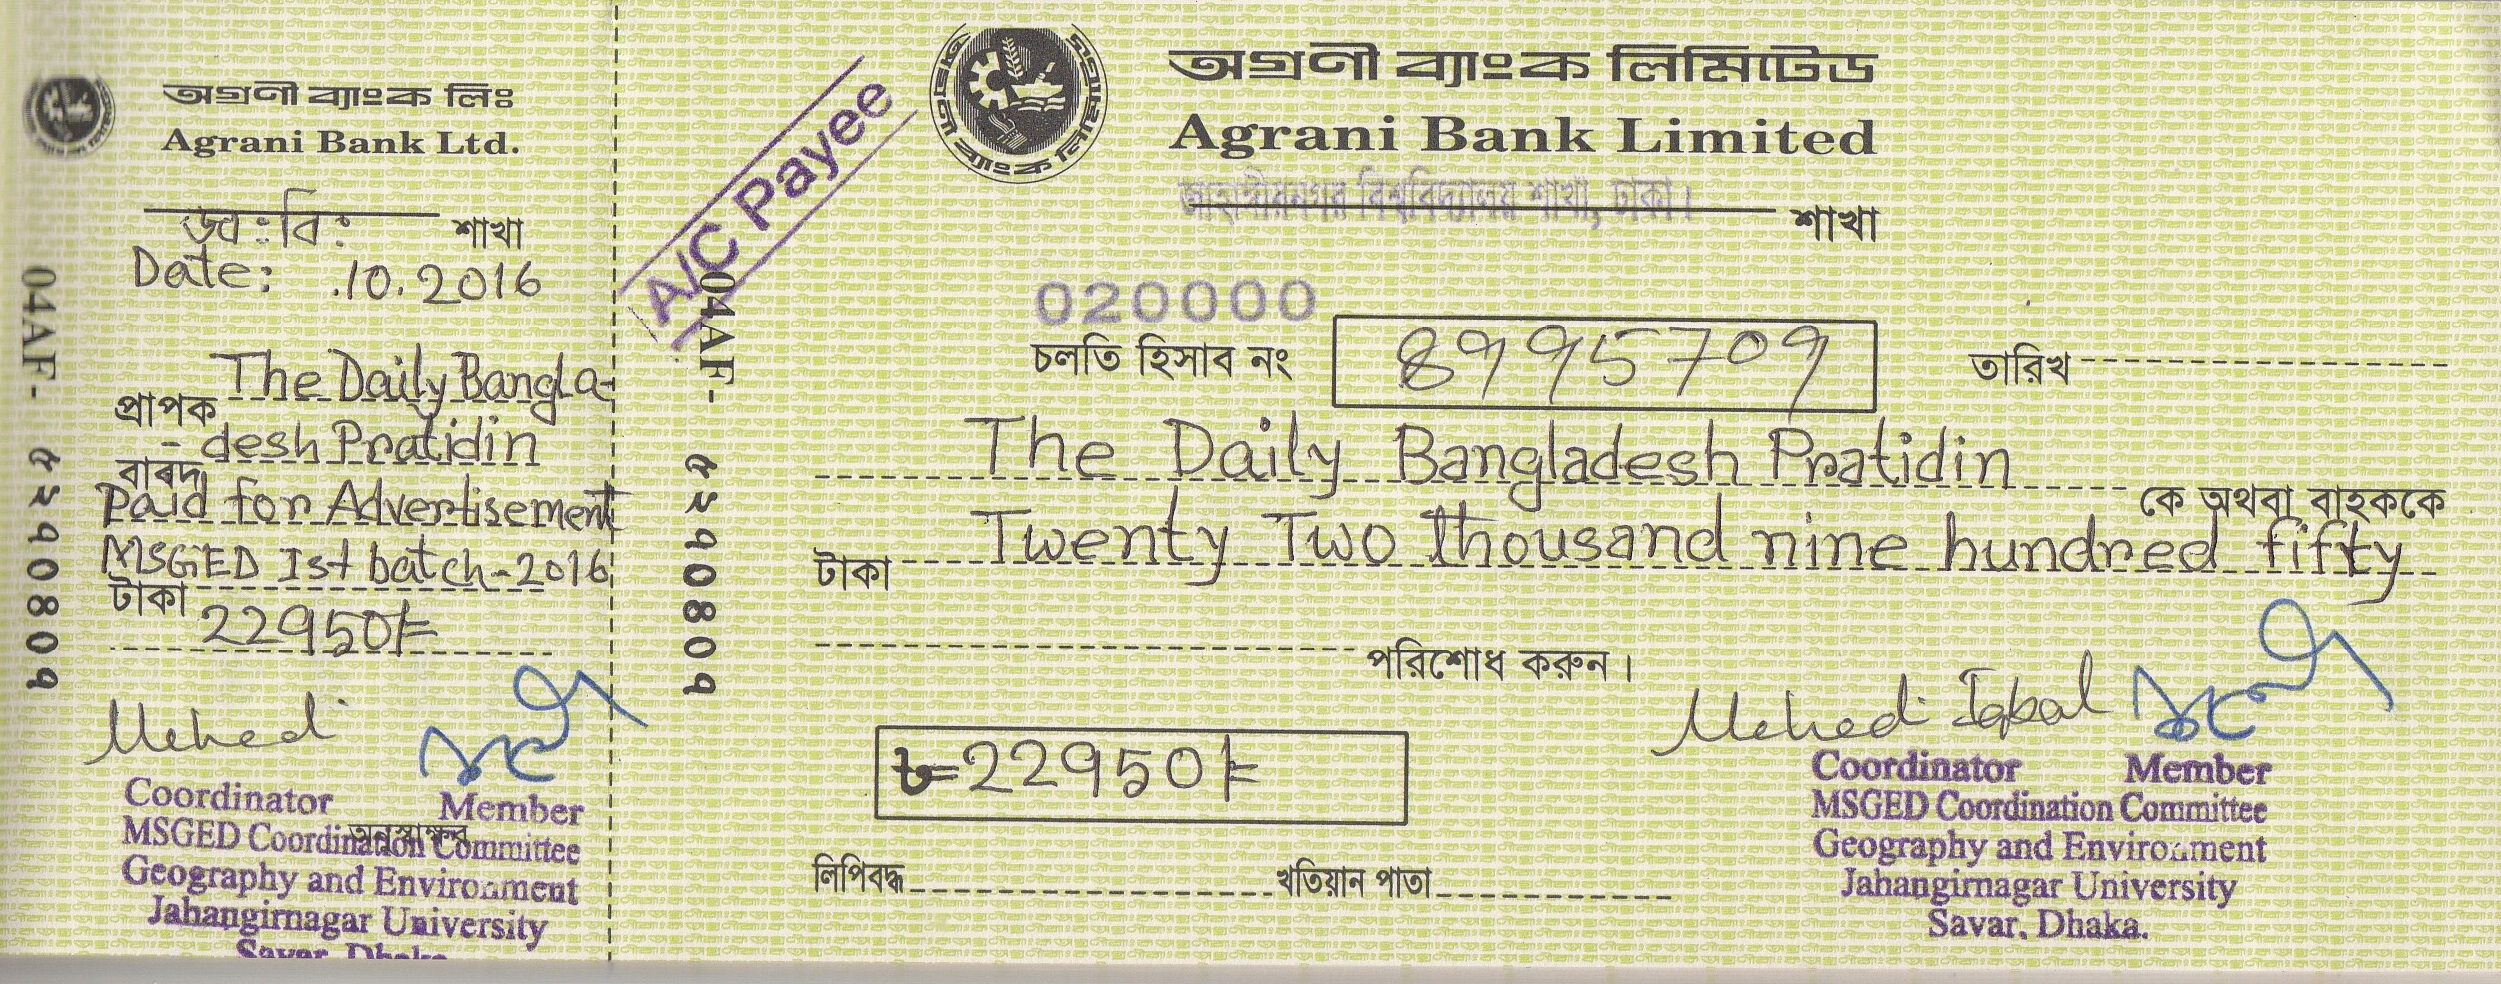 অগ্রণী ব্যাংক লিঃ
Agrani Bank Ltd.
জা:বি: শাখা
Date: .10.2016
প্রাপক The Daily Bangla-
- desh Pratidin
বাবদ
Paid for Advertisement
MSGED 1st batch-2016
টাকা 22950/=
Mehedi
Coordinator Member
অনুস্বাক্ষর
MSGED Coordination Committee
Geography and Environment
Jahangirnagar University
Savar, Dhaka
04AF- ৫২৭০৪০৭
A/C Payee
04AF- ৫২৭০৪০৭
অগ্রণী ব্যাংক লিমিটেড
Agrani Bank Limited
জাহাঙ্গীরনগর বিশ্ববিদ্যালয় শাখা, ঢাকা।
শাখা
020000
চলতি হিসাব নং
তারিখ
The Daily Bangladesh Pratidin
কে অথবা বাহককে
টাকা Twenty Two thousand nine hundred fifty
পরিশোধ করুন।
৳=22950/=
Mehedi Iqbal
লিপিবদ্ধ খতিয়ান পাতা
Coordinator Member
MSGED Coordination Committee
Geography and Environment
Jahangirnagar University
Savar, Dhaka.